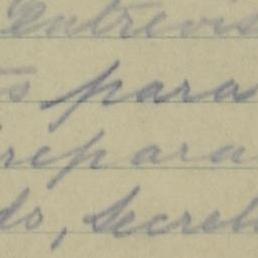 entrevis
s para
repara
do, Secret